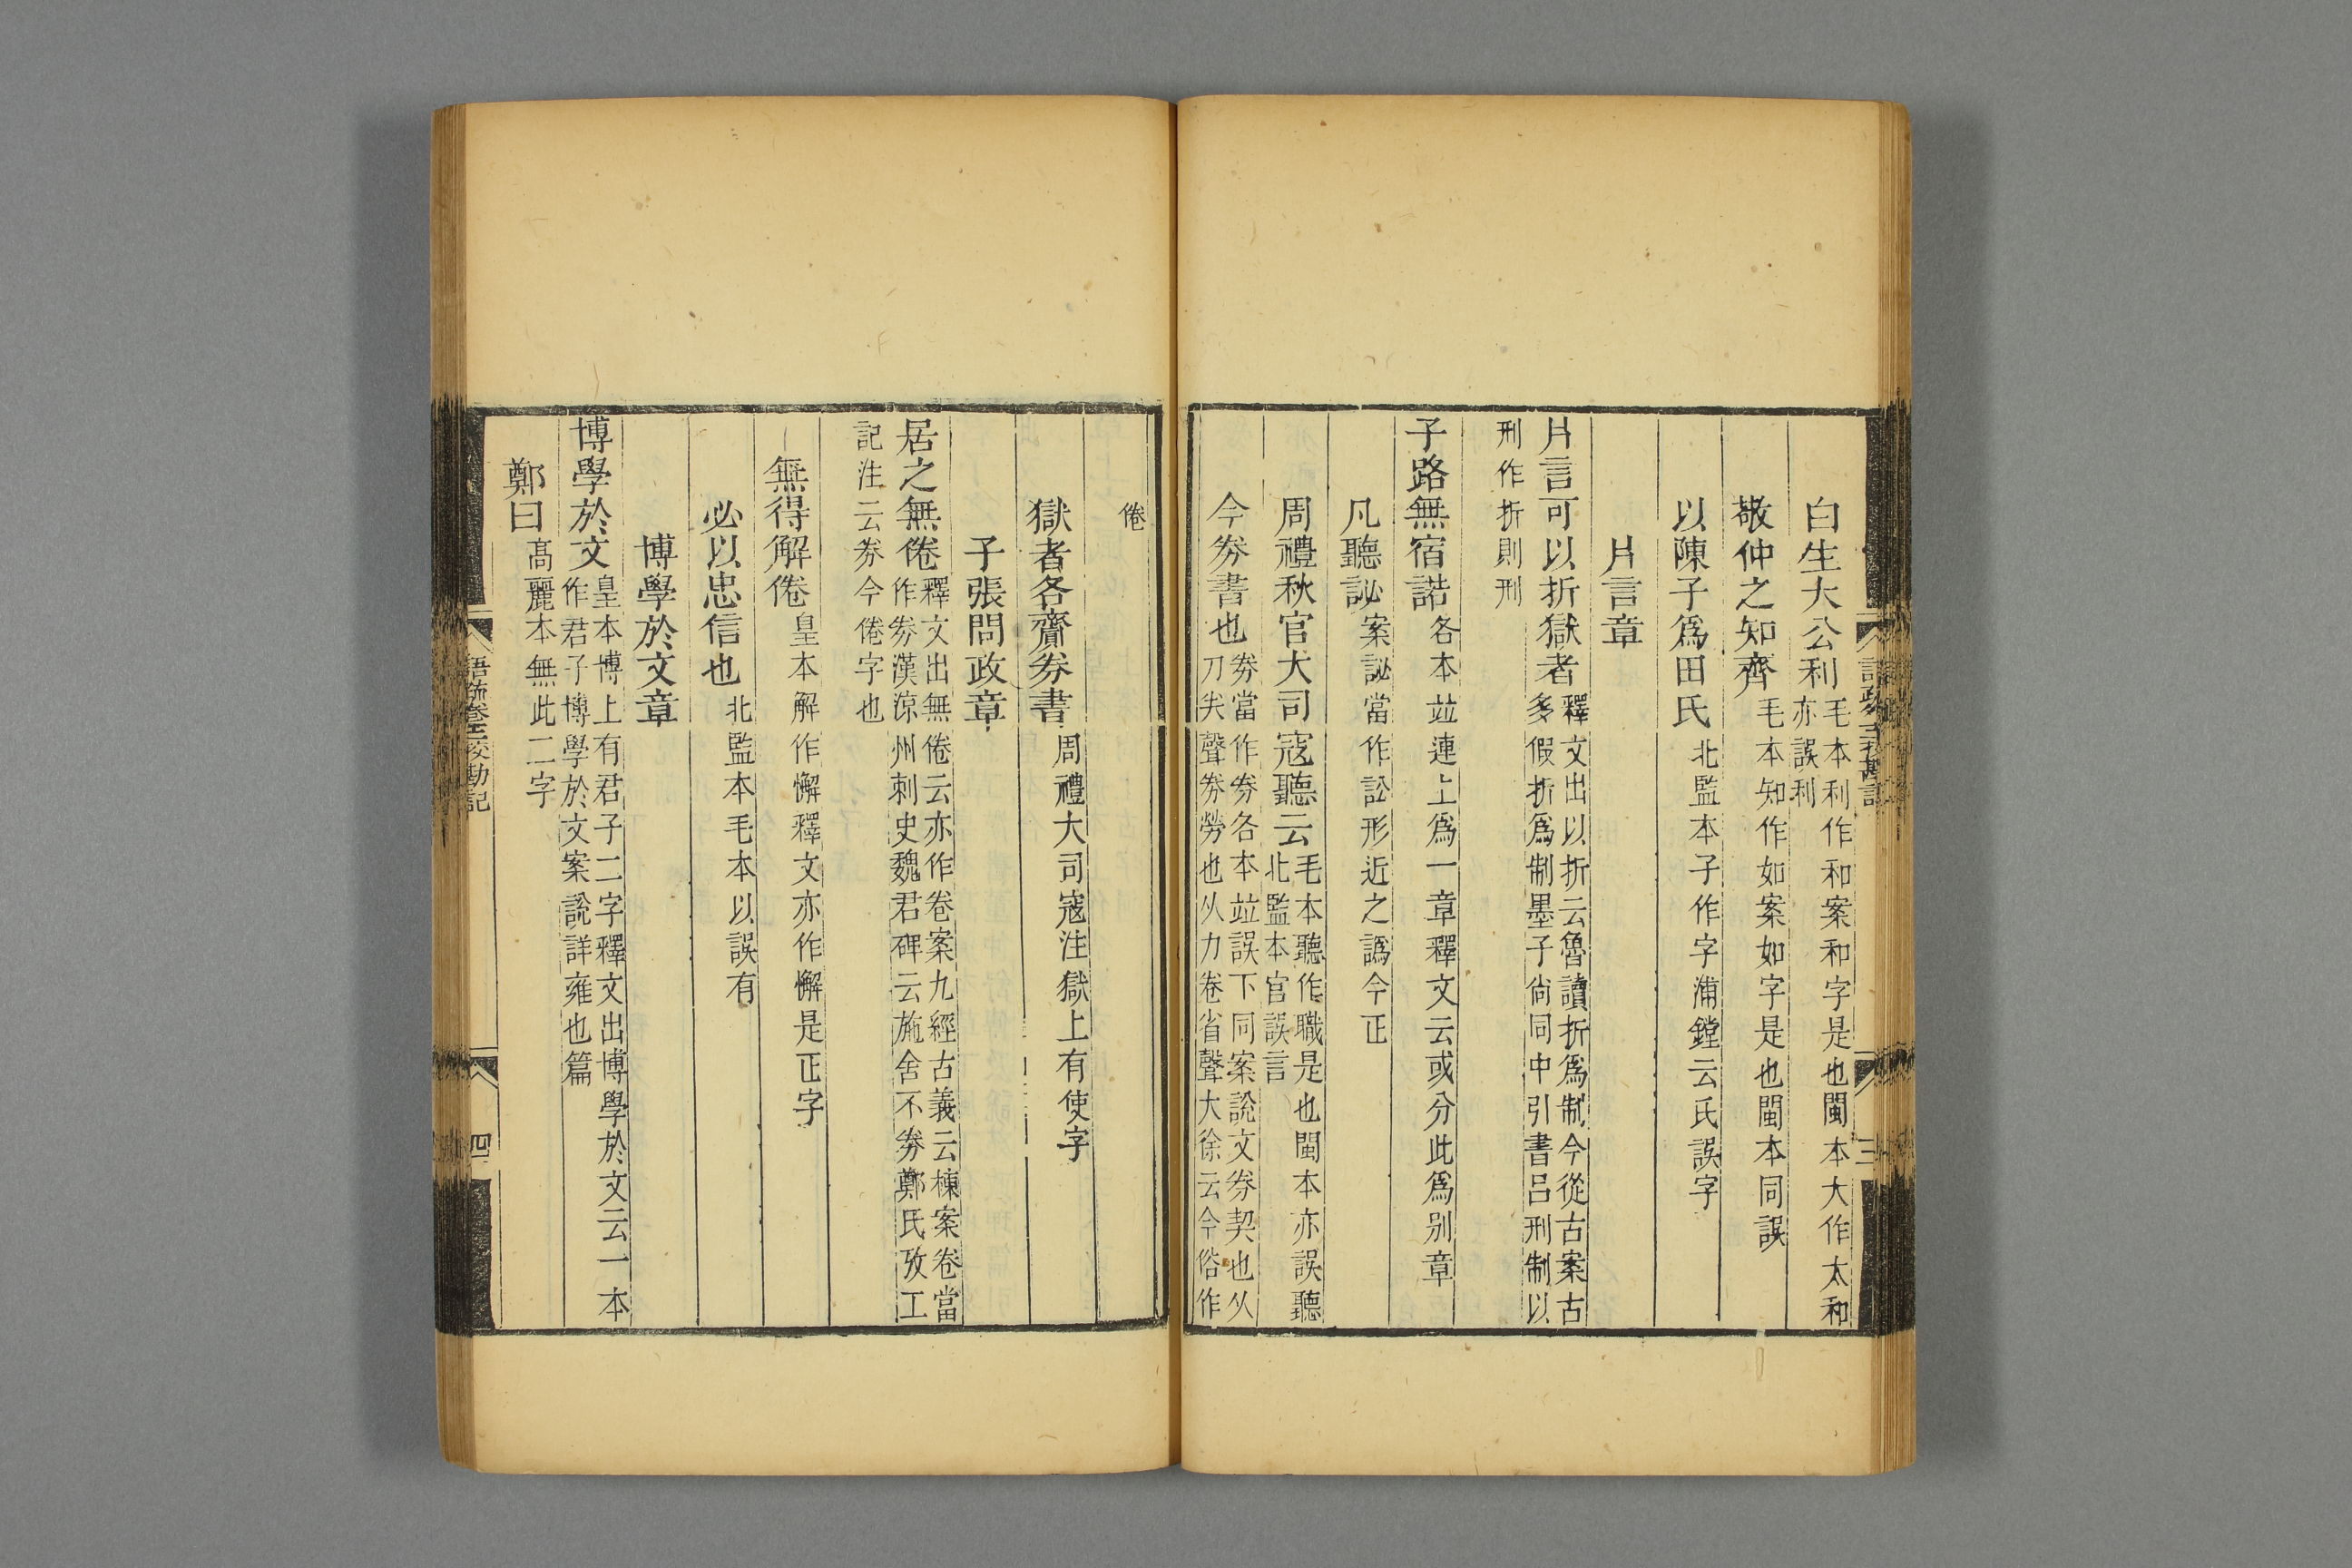 白生大公利毛本利作和案和字是也閩本大作太和亦誤利
敬仲之知齊毛本知作如案如字是也閩本同誤
以陳子爲田氏北監本子作字浦鏜云氏誤字
片言章
片言可以折獄者釋文出以折云魯讀折爲制今從古案古多假折爲制墨子尙同中引書呂刑制以
刑作折則刑
子路無宿諾各本竝連上爲一章釋文云或分此爲別章
凡聽訟案訟當作訟形近之譌今正
周禮秋官大司寇聽云毛本聽作職是也閩本亦誤聽北監本官誤言
今劵書也劵當作券各本竝誤下同案說文券契也从刀𠔉聲劵勞也从力卷省聲大徐云今俗作
倦
獄者各齎劵書周禮大司寇注獄上有使字
子張問政章
居之無倦釋文出無倦云亦作卷案九經古義云棟案卷當作劵漢涼州刺史魏君碑云施舍不劵鄭氏攷工
記注云劵今倦字也
無得解倦皇本解作懈釋文亦作懈是正字
必以忠信也北監本毛本以誤有
博學於文章
博學於文皇本博上有君子二字釋文出博學於文云一本作君子博學於文案說詳雍也篇
鄭曰高麗本無此二字
語疏卷十二校勘記
四